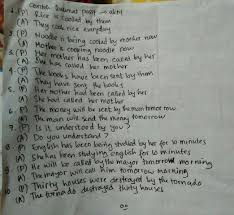 Contoh kalimat pasif → aktif
1. (P) Rice is cooked by them
(A) They cook rice everyday
2. (P) Noodle is being cooked by mother now
(A) Mother is cooking noodle now
3. (P) Her mother has been called by her
(A) She has called her mother
4. (P) The books have been sent by them
(A) They have sent the books
5. (P) Her mother had been called by her
(A) She had called her mother
6. (P) The money will be sent by the man tomorrow
(A) The man will send the money tomorrow
7. (P) Is it understood by you?
(A) Do you understand?
8. (P) English has been being studied by her for 10 minutes
(A) She has been studying english for 10 minutes
9. (P) He will be called by the mayor tomorrow morning
(A) The mayor will call him tomorrow morning
10. (P) Thirty houses were destroyed by the tornado
(A) The tornado destroyed thirty houses